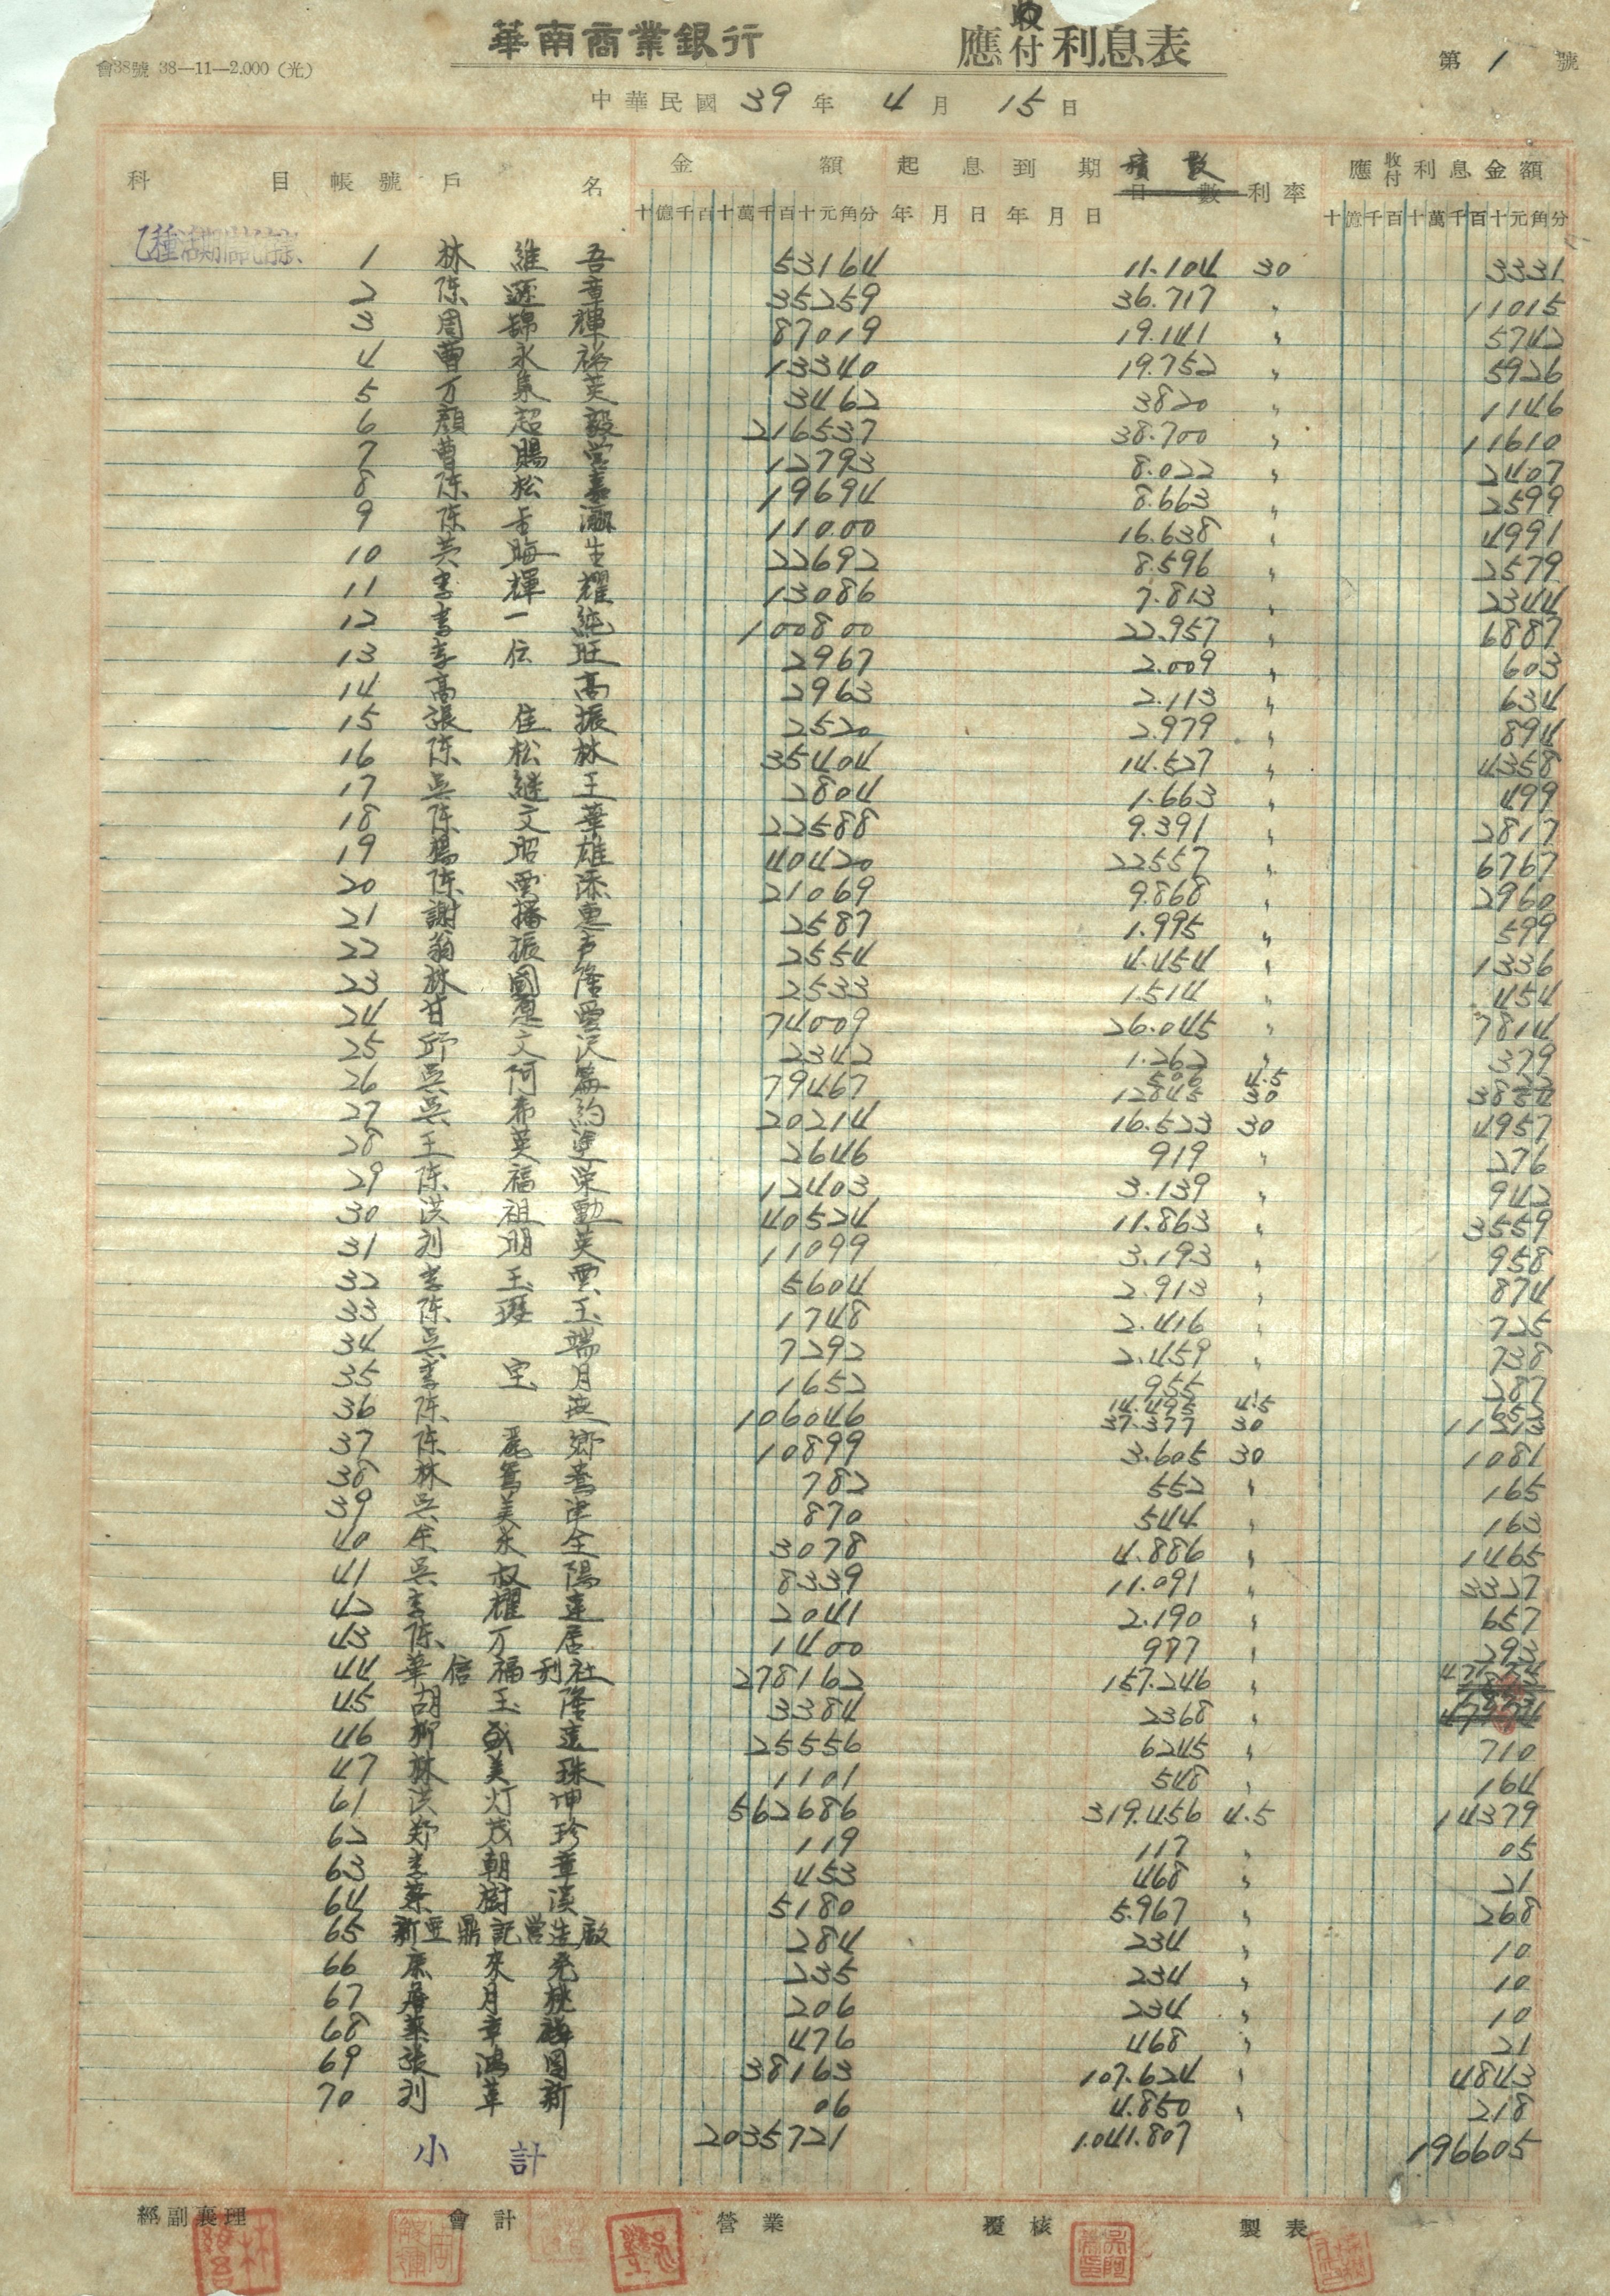 華南商業銀行 應收付利息表
會38號 38—11—2.000(光) 第 1 號
中華民國 39 年 4 月 15 日
科目 帳號 戶名 金額 起息 到期 積數 日數 利率 應收付利息金額
十億千百十萬千百十元角分 年月日 年月日 十億千百十萬千百十元角分
1 林維吾 53164 11.104 30 3331
2 陈遜章 35259 36.717 〃 11015
3 周錦禪 87019 19.141 〃 5742
4 曹永裕 13340 19.752 〃 5926
5 万集英 3462 3820 〃 1146
6 顏超毅 216537 38.700 〃 11610
7 曹賜堂 12793 8.022 〃 2407
8 陈松嘉 19694 8.663 〃 2599
9 陈 11000 16.638 〃 4991
10 英晦生 22692 8.596 〃 2579
11 李輝耀 13086 7.813 〃 2344
12 李一純 100800 22.957 〃 6887
13 李伝旺 2967 2.009 〃 603
14 高高 2963 2.113 〃 634
15 張佳振 2520 2.979 〃 894
16 陈松林 35404 14.527 〃 4358
17 吳継王 2804 1.663 〃 499
18 陈文華 22588 9.391 〃 2817
19 楊昭雄 40420 22557 〃 6767
20 陈雲添 21069 9.868 〃 2960
21 謝播惠 2587 1.995 〃 599
22 翁振声 2554 4.454 〃 1336
23 林國隆 2533 1.514 〃 454
24 甘雲 74009 26.045 〃 7814
25 邱文沢 2342 1.262 〃 379
26 吳阿 79467 506 4.5 12845 30
27 吳希約 20214 16.523 30 4957
28 王英 2646 919 〃 276
29 陈福荣 12403 3.139 〃 942
30 洪祖勳 40524 11.863 〃 3559
31 刘明英 11099 3.193 〃 958
32 李玉雲 5604 2.913 〃 874
33 陈玉 1748 2.416 〃 725
34 吳端 7292 2.459 〃 738
35 李宝月 1652 955 〃 287
36 陈 106046 14.495 4.5 37.377 30
37 陈鄉 10899 3.605 30 1081
38 林鴛鴦 782 552 〃 165
39 吳美津 870 544 〃 163
40 余永全 3078 4.886 〃 1465
41 吳叔陽 8339 11.091 〃 3327
42 李耀速 2041 2.190 〃 657
43 陈万居 1400 977 〃 293
44 華信福利社 278162 157.246 〃
45 胡玉隆 3384 2368 〃 710
46 柳盛遠 25556 6245 〃
47 林美珠 1101 548 〃 164
61 洪灯坤 562686 319.456 4.5 14379
62 郑茂珍 119 117 〃 05
63 李朝章 453 468 〃 21
64 葉樹溪 5180 5.967 〃 268
65 新亚鼎記営造廠 284 234 〃 10
66 康來発 235 234 〃 10
67 月桃 206 234 〃 10
68 葉章 476 468 〃 21
69 張鴻圖 38163 107.624 〃 4843
70 刘革新 06 4.850 〃 218
小計 2035721 1.041.807 196605
經副襄理 會計 營業 覆核 製表